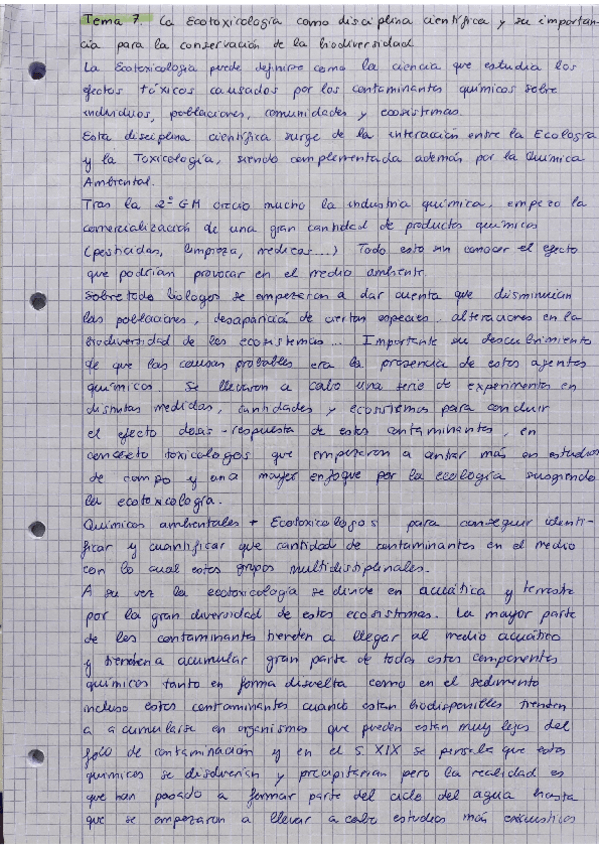 Tema 7. La Ecotoxicología como disciplina científica y su importan-
cia para la conservación de la biodiversidad
La Ecotoxicología puede definirse como la ciencia que estudia los
efectos tóxicos causados por los contaminantes químicos sobre
individuos, poblaciones, comunidades y ecosistemas.
Esta disciplina científica surge de la interacción entre la Ecología
y la Toxicología, siendo complementada además por la Química
Ambiental.
Tras la 2ª GM creció mucho la industria química, empezo la
comercialización de una gran cantidad de productos químicos
(pesticidas, limpieza, medicas...) Todo esto sin conocer el efecto
que podrían provocar en el medio ambiente.
Sobre todo biologos se empezaron a dar cuenta que disminuian
las poblaciones, desaparició de ciertas especies, alteraciones en la
biodiversidad de los ecosistemas... Importante su descubrimiento
de que las causas probables era la presencia de estos agentes
químicos. Se llevaron a cabo una serie de experimentos en
distintas medidas, cantidades y ecosistemas para concluir
el efecto dosis-respuesta de estos contaminantes, en
concreto toxicologos que empezaron a entrar más en estudios
de campo y una mayor enfoque por la ecología surgiendo
la ecotoxicología.
Químicos ambientales + Ecotoxicologos para conseguir identi-
ficar y cuantificar que cantidad de contaminantes en el medio
con lo cual estos grupos multidisciplinales.
A su vez la ecotoxicología se divide en acuática y terrestre
por la gran diversidad de estos ecosistemas. La mayor parte
de los contaminantes tienden a llegar al medio acuático
y tienden a acumular gran parte de todos estos componentes
químicos tanto en forma disuelta como en el sedimento
incluso estos contaminantes cuando estan biodisponibles tienden
a acumularse en organismos que pueden estan muy lejos del
foco de contaminación y en el S. XIX se pensaba que estos
químicos se disolverian y precipitarian pero la realidad es
que han pasado a formar parte del ciclo del agua hasta
que se empezaron a llevar a cabo estudios más exhaustivos